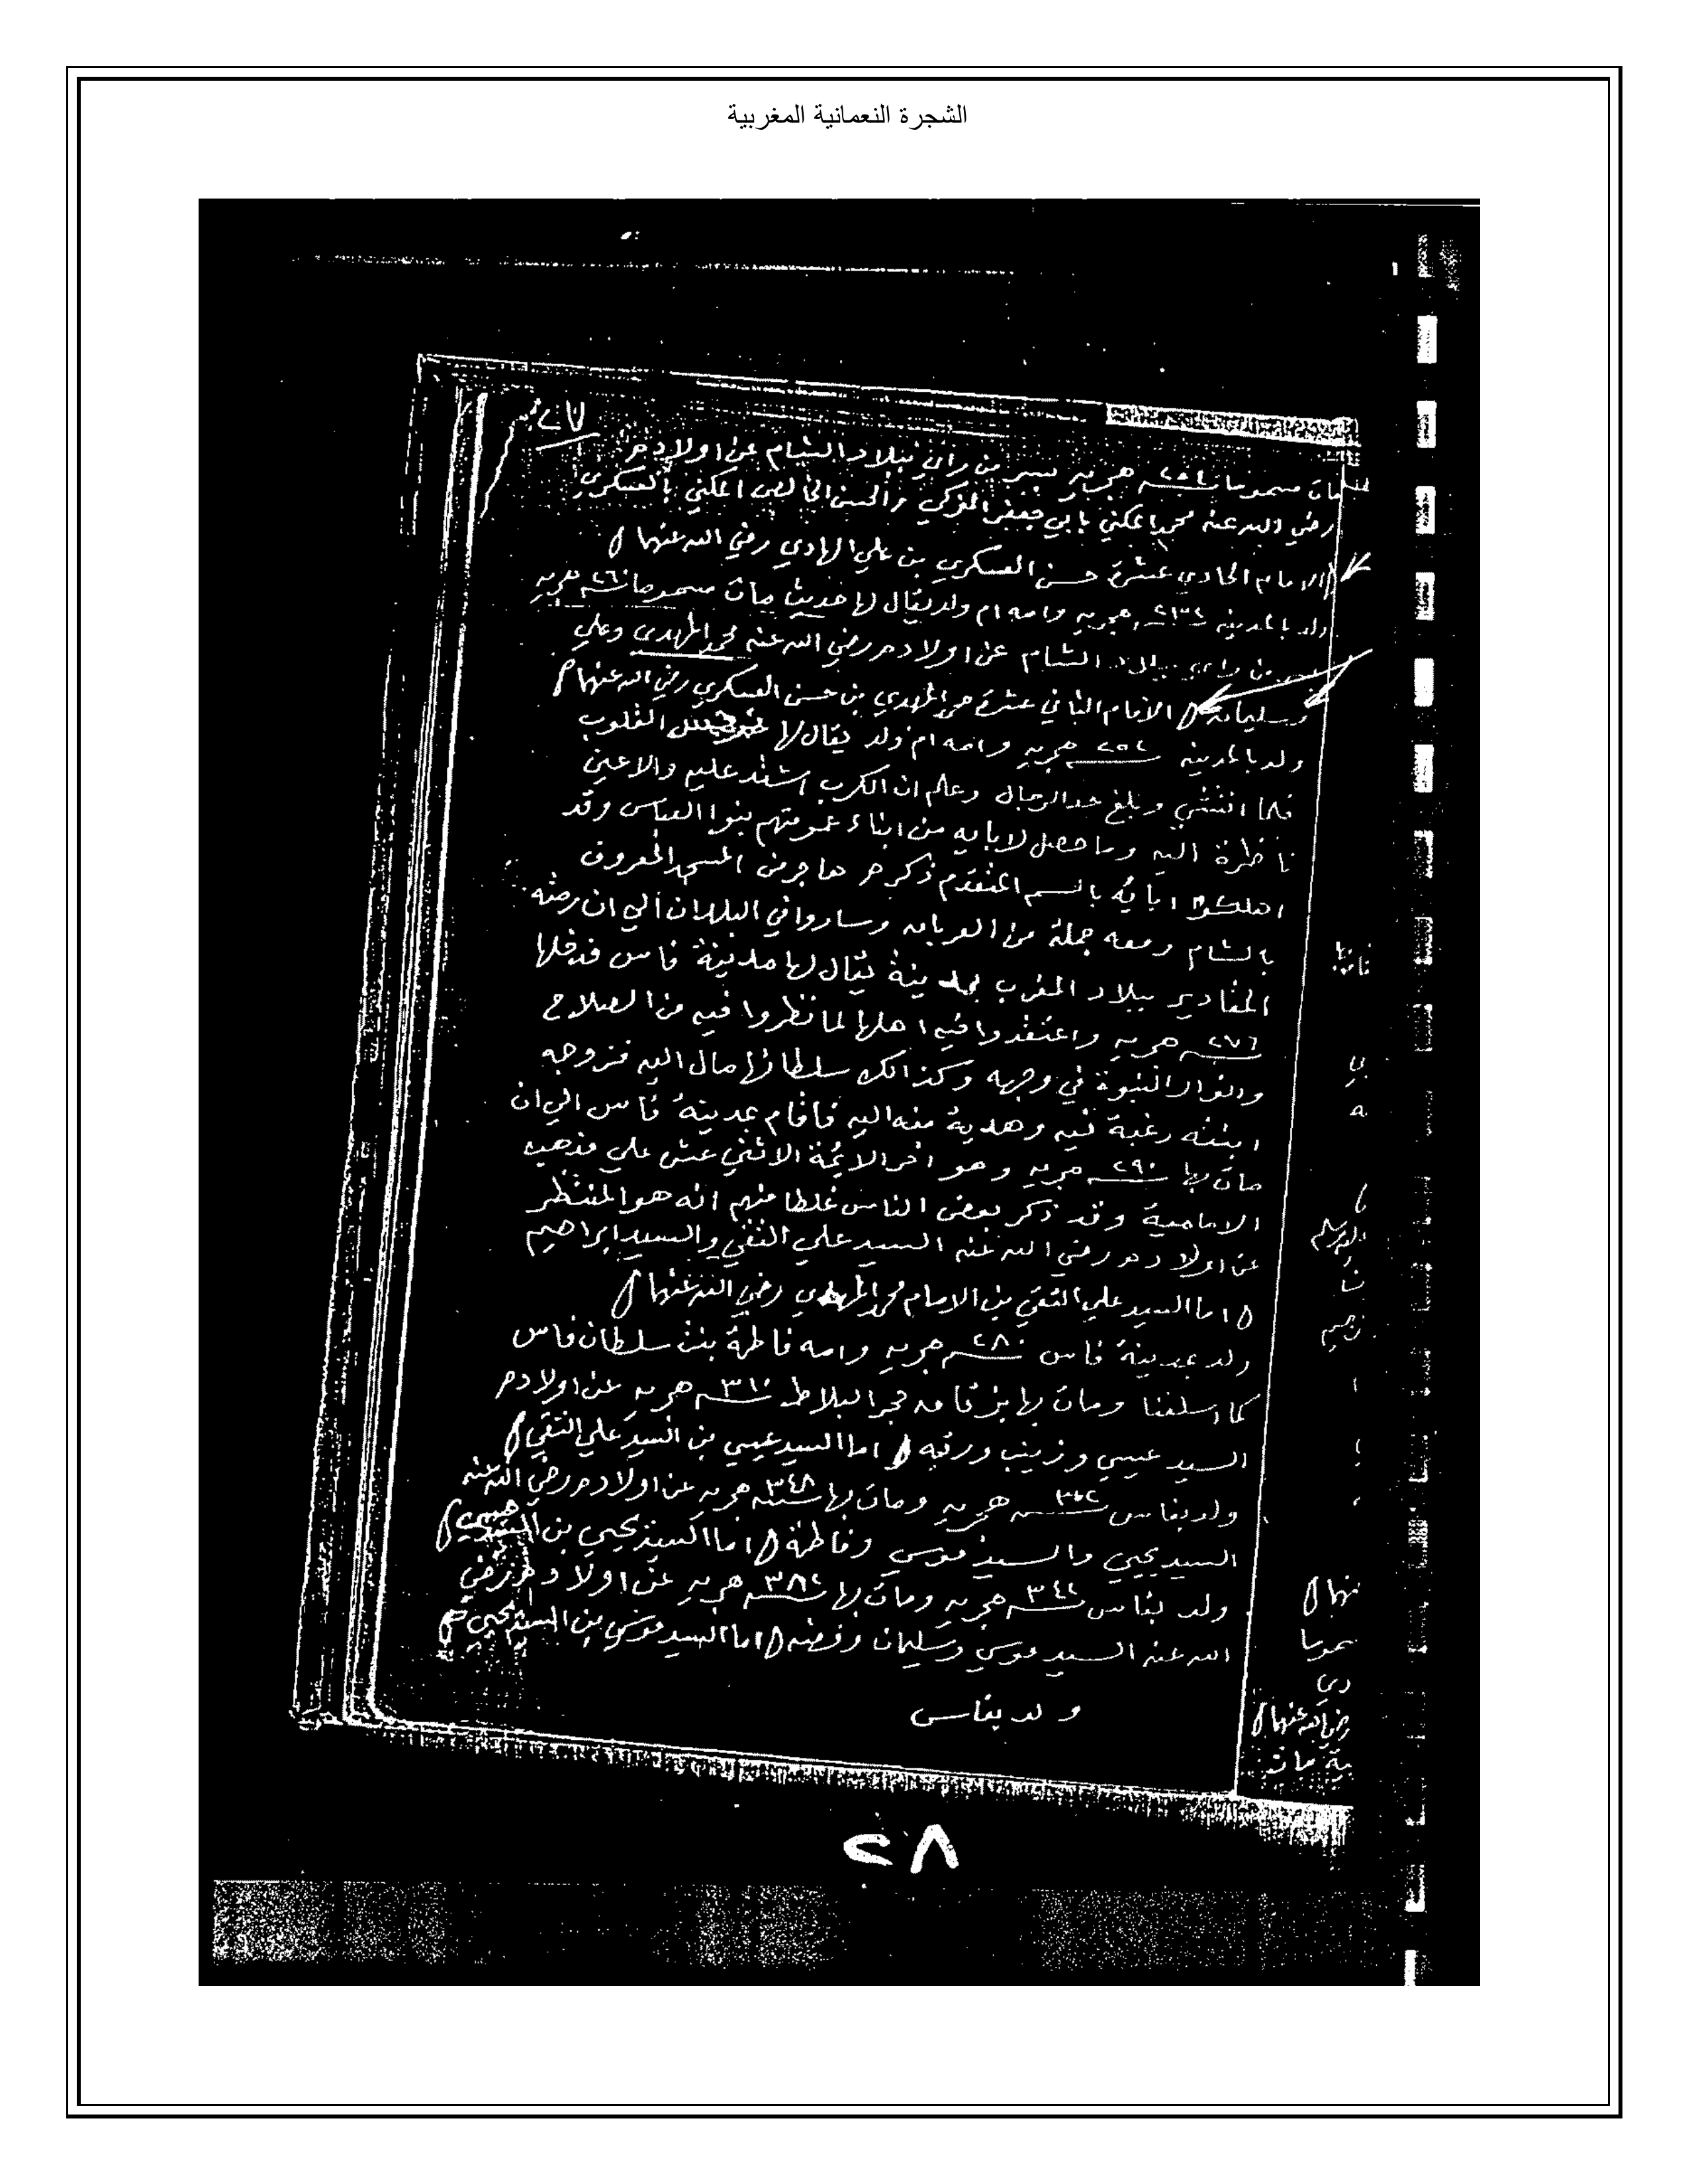 الشجرة النعمانية المغربية
٢٧
مات مسموما سنة ٢٥٤ هجريه بسر من راي ببلاد الشام عن اولاده
رضي الله عنه محمد المكني بابي جعفر الزكي والحسن الخالص المكني بالعسكري
الامام الحادي عشرة حسن العسكري بن علي الهادي رضي الله عنهما
ولد بالمدينه سنة ٢٣٢ هجريه وامه ام ولد يقال لها حديث مات مسموما سنة ٢٦٠ هجريه
بسر من راي ببلاد الشام عن اولاده رضي الله عنه محمد المهدي وعلي
وسليمان الامام الثاني عشرة محمد المهدي بن حسن العسكري رضي الله عنهما
ولد بالمدينه سنة ٢٥٢ هجريه وامه ام ولد يقال لها القلوب
فلما انتشي وبلغ حد الرجال وعلم ان الكرب اشتد عليه والاعين
ناظرة اليه وما حصل لابايه من ابناء عمومتهم بنوا العباس وقد
اهلكوا ابايه بالسم المتقدم ذكره هاجر من المسجد المعروف
بالشام ومعه جملة من العربان وساروا في البلدان الي ان رمته
المقادير ببلاد المغرب بمدينة يقال لها مدينة فاس فدخلها
سنة ٢٧٦ هجريه واعتقدوا فيه اهلها لما نظروا فيه من الصلاح
وانوار النبوة في وجهه وكذالك سلطانها مال اليه فزوجه
ابنته رغبة فيه وهدية منه اليه فاقام بمدينة فاس الي ان
مات بها سنة ٢٩٠ هجريه وهو اخر الائمة الاثني عشر علي مذهب
الامامية وقد ذكر بعض الناس غلطا منهم انه هو المنتظر
عن اولاده رضي الله عنه السيد علي التقي والسيد ابراهيم
اما السيد علي التقي بن الامام محمد المهدي رضي الله عنهما
ولد بمدينة فاس سنة ٢٨٠ هجريه وامه فاطمة بنت سلطان فاس
كما اسلفنا ومات بها بزقاق حجر البلاط سنة ٣١٠ هجريه عن اولاده
السيد عيسي وزينب ورقيه اما السيد عيسي بن السيد علي التقي
ولد بفاس سنة ٣٠٢ هجريه ومات بها سنة ٣٤٨ هجريه عن اولاده رضي الله عنه
السيد يحيي والسيد موسي وفاطمة اما السيد يحيي بن السيد عيسي
ولد بفاس سنة ٣٤٢ هجريه ومات بها سنة ٣٨٢ هجريه عن اولاده رضي
الله عنه السيد موسي وسليمان وفضه اما السيد موسي بن السيد يحيي
ولد بفاس
٢٨